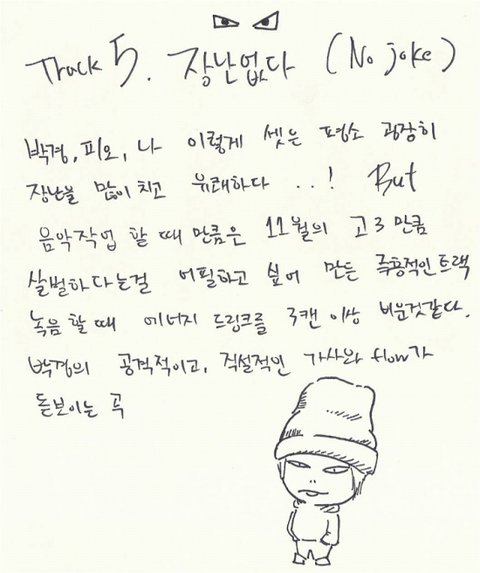 Track 5. 장난없다 (No joke)
박경, 피오, 나 이렇게 셋은 평소 굉장히
장난을 많이 치고 유쾌하다 ..! But
음악작업 할 때 만큼은 11월의 고3 만큼
살벌하다는걸 어필하고 싶어 만든 즉흥적인 트랙
녹음 할 때 에너지 드링크를 9캔 이상 비운것같다.
박경의 공격적이고, 직설적인 가사와 flow가
돋보이는 곡